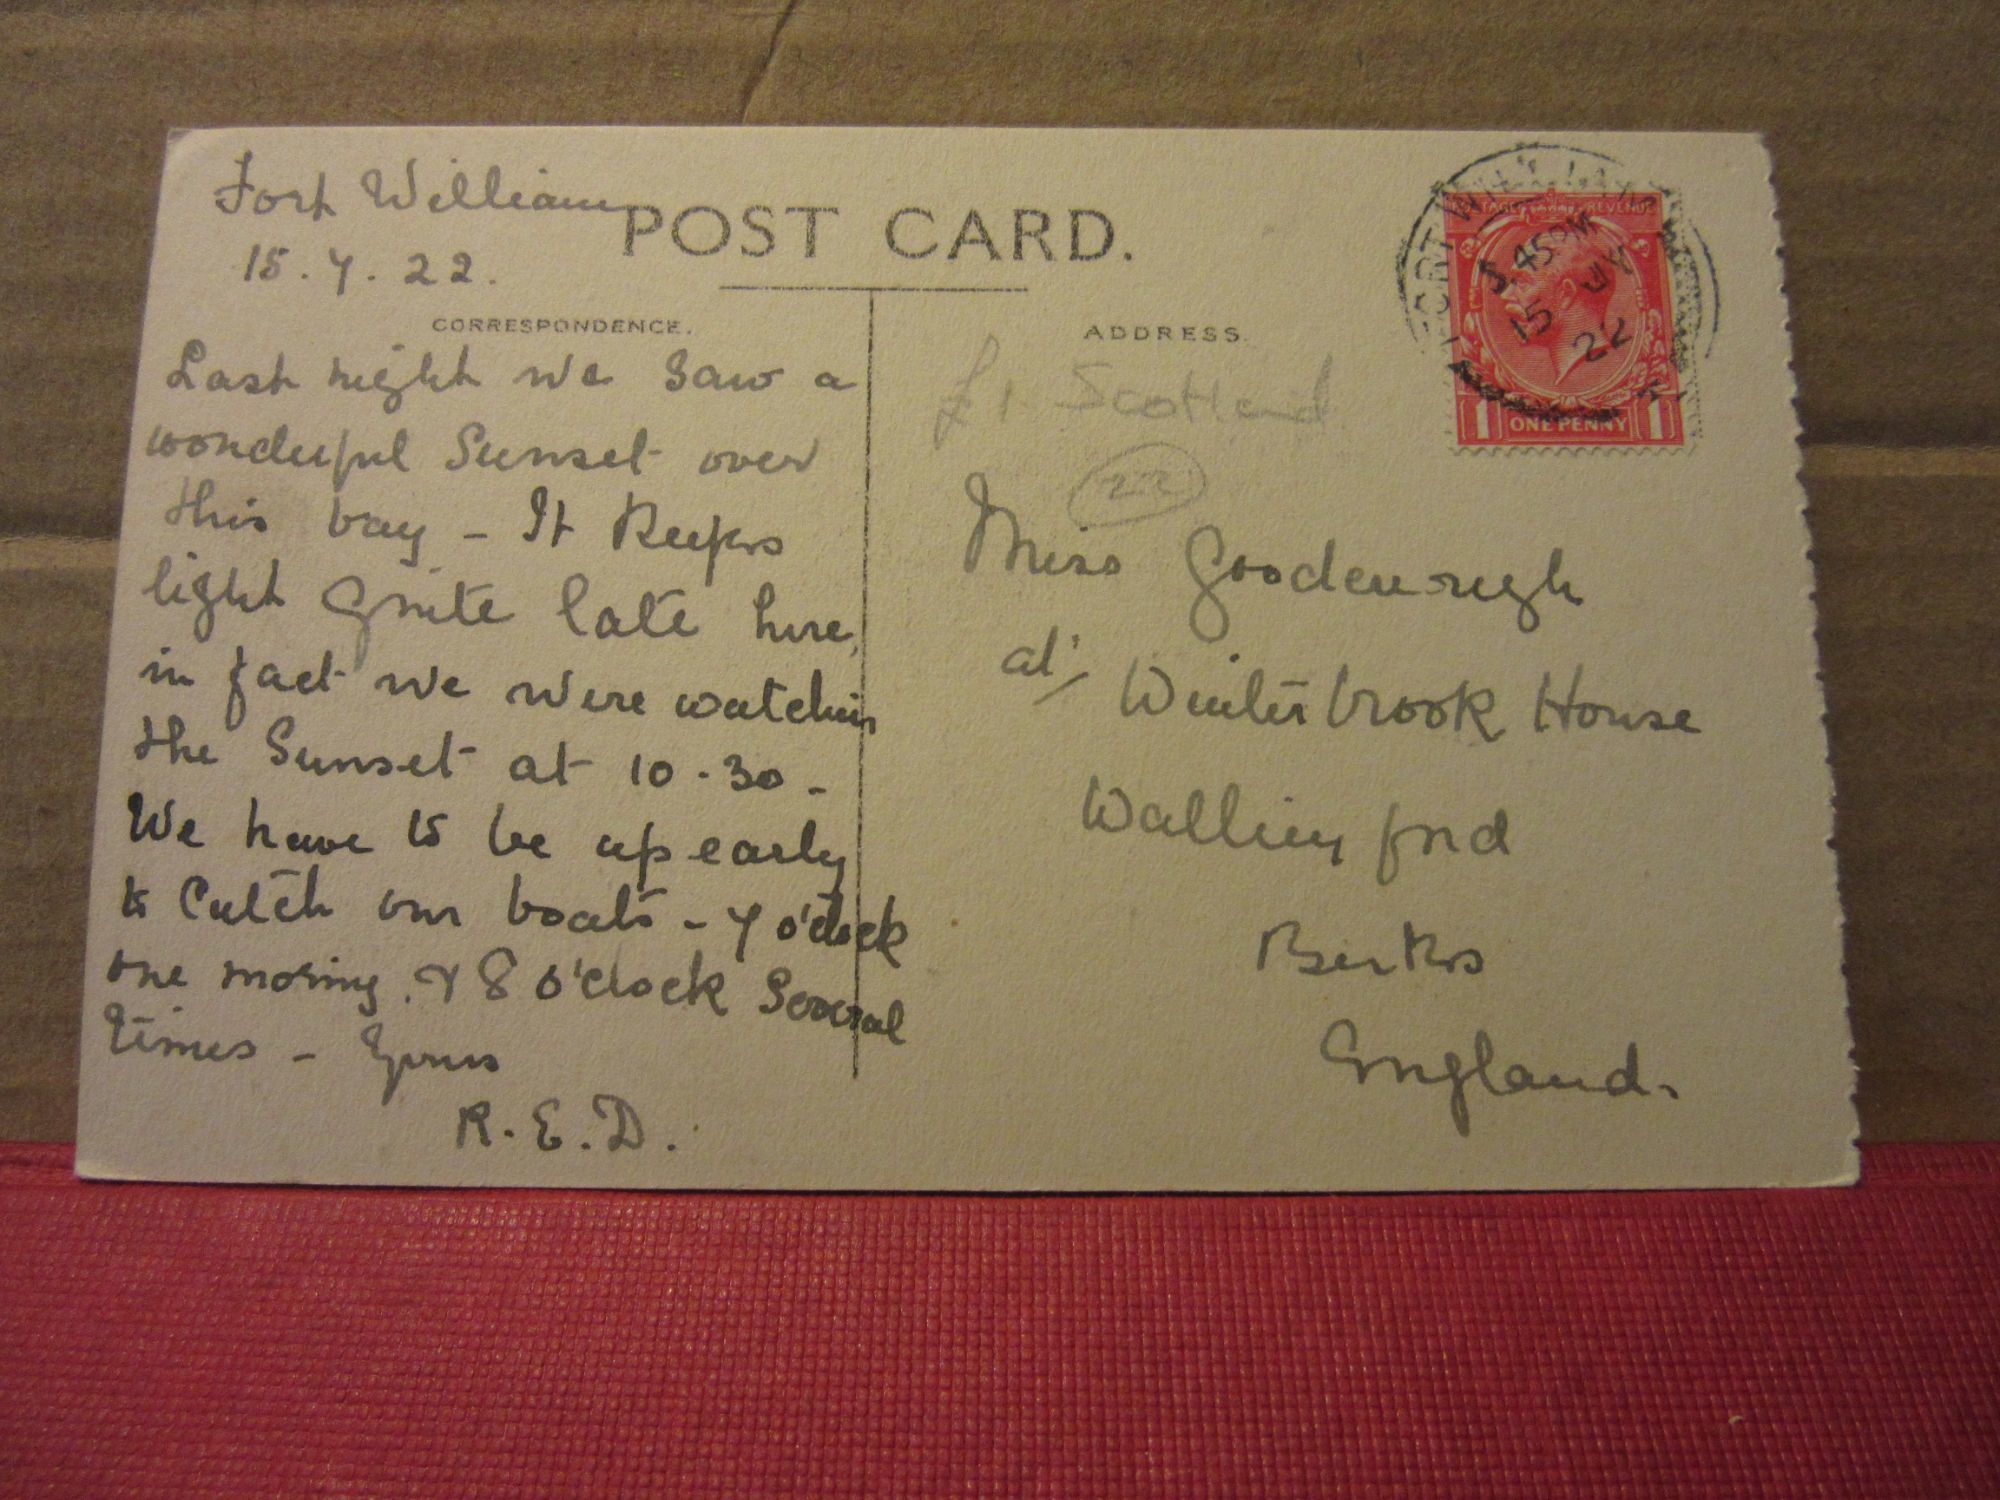 Fort William
15.7.22.
POST CARD.
CORRESPONDENCE.
Last night we saw a
wonderful Sunset over
this bay - It Keeps
light Quite late here,
in fact we were watching
the Sunset at 10.30 -
We have to be up early
to Catch our boats - 7 o'clock
one morning, & 8 o'clock Several
times - Yours
R.E.D.
ADDRESS
£1 Scotland
22
Miss Goodenough
at
Winterbrook House
Wallingford
Berks
England.
FORT WILLIAM
45 PM
15 JY
22
POSTAGE REVENUE
1 ONE PENNY 1